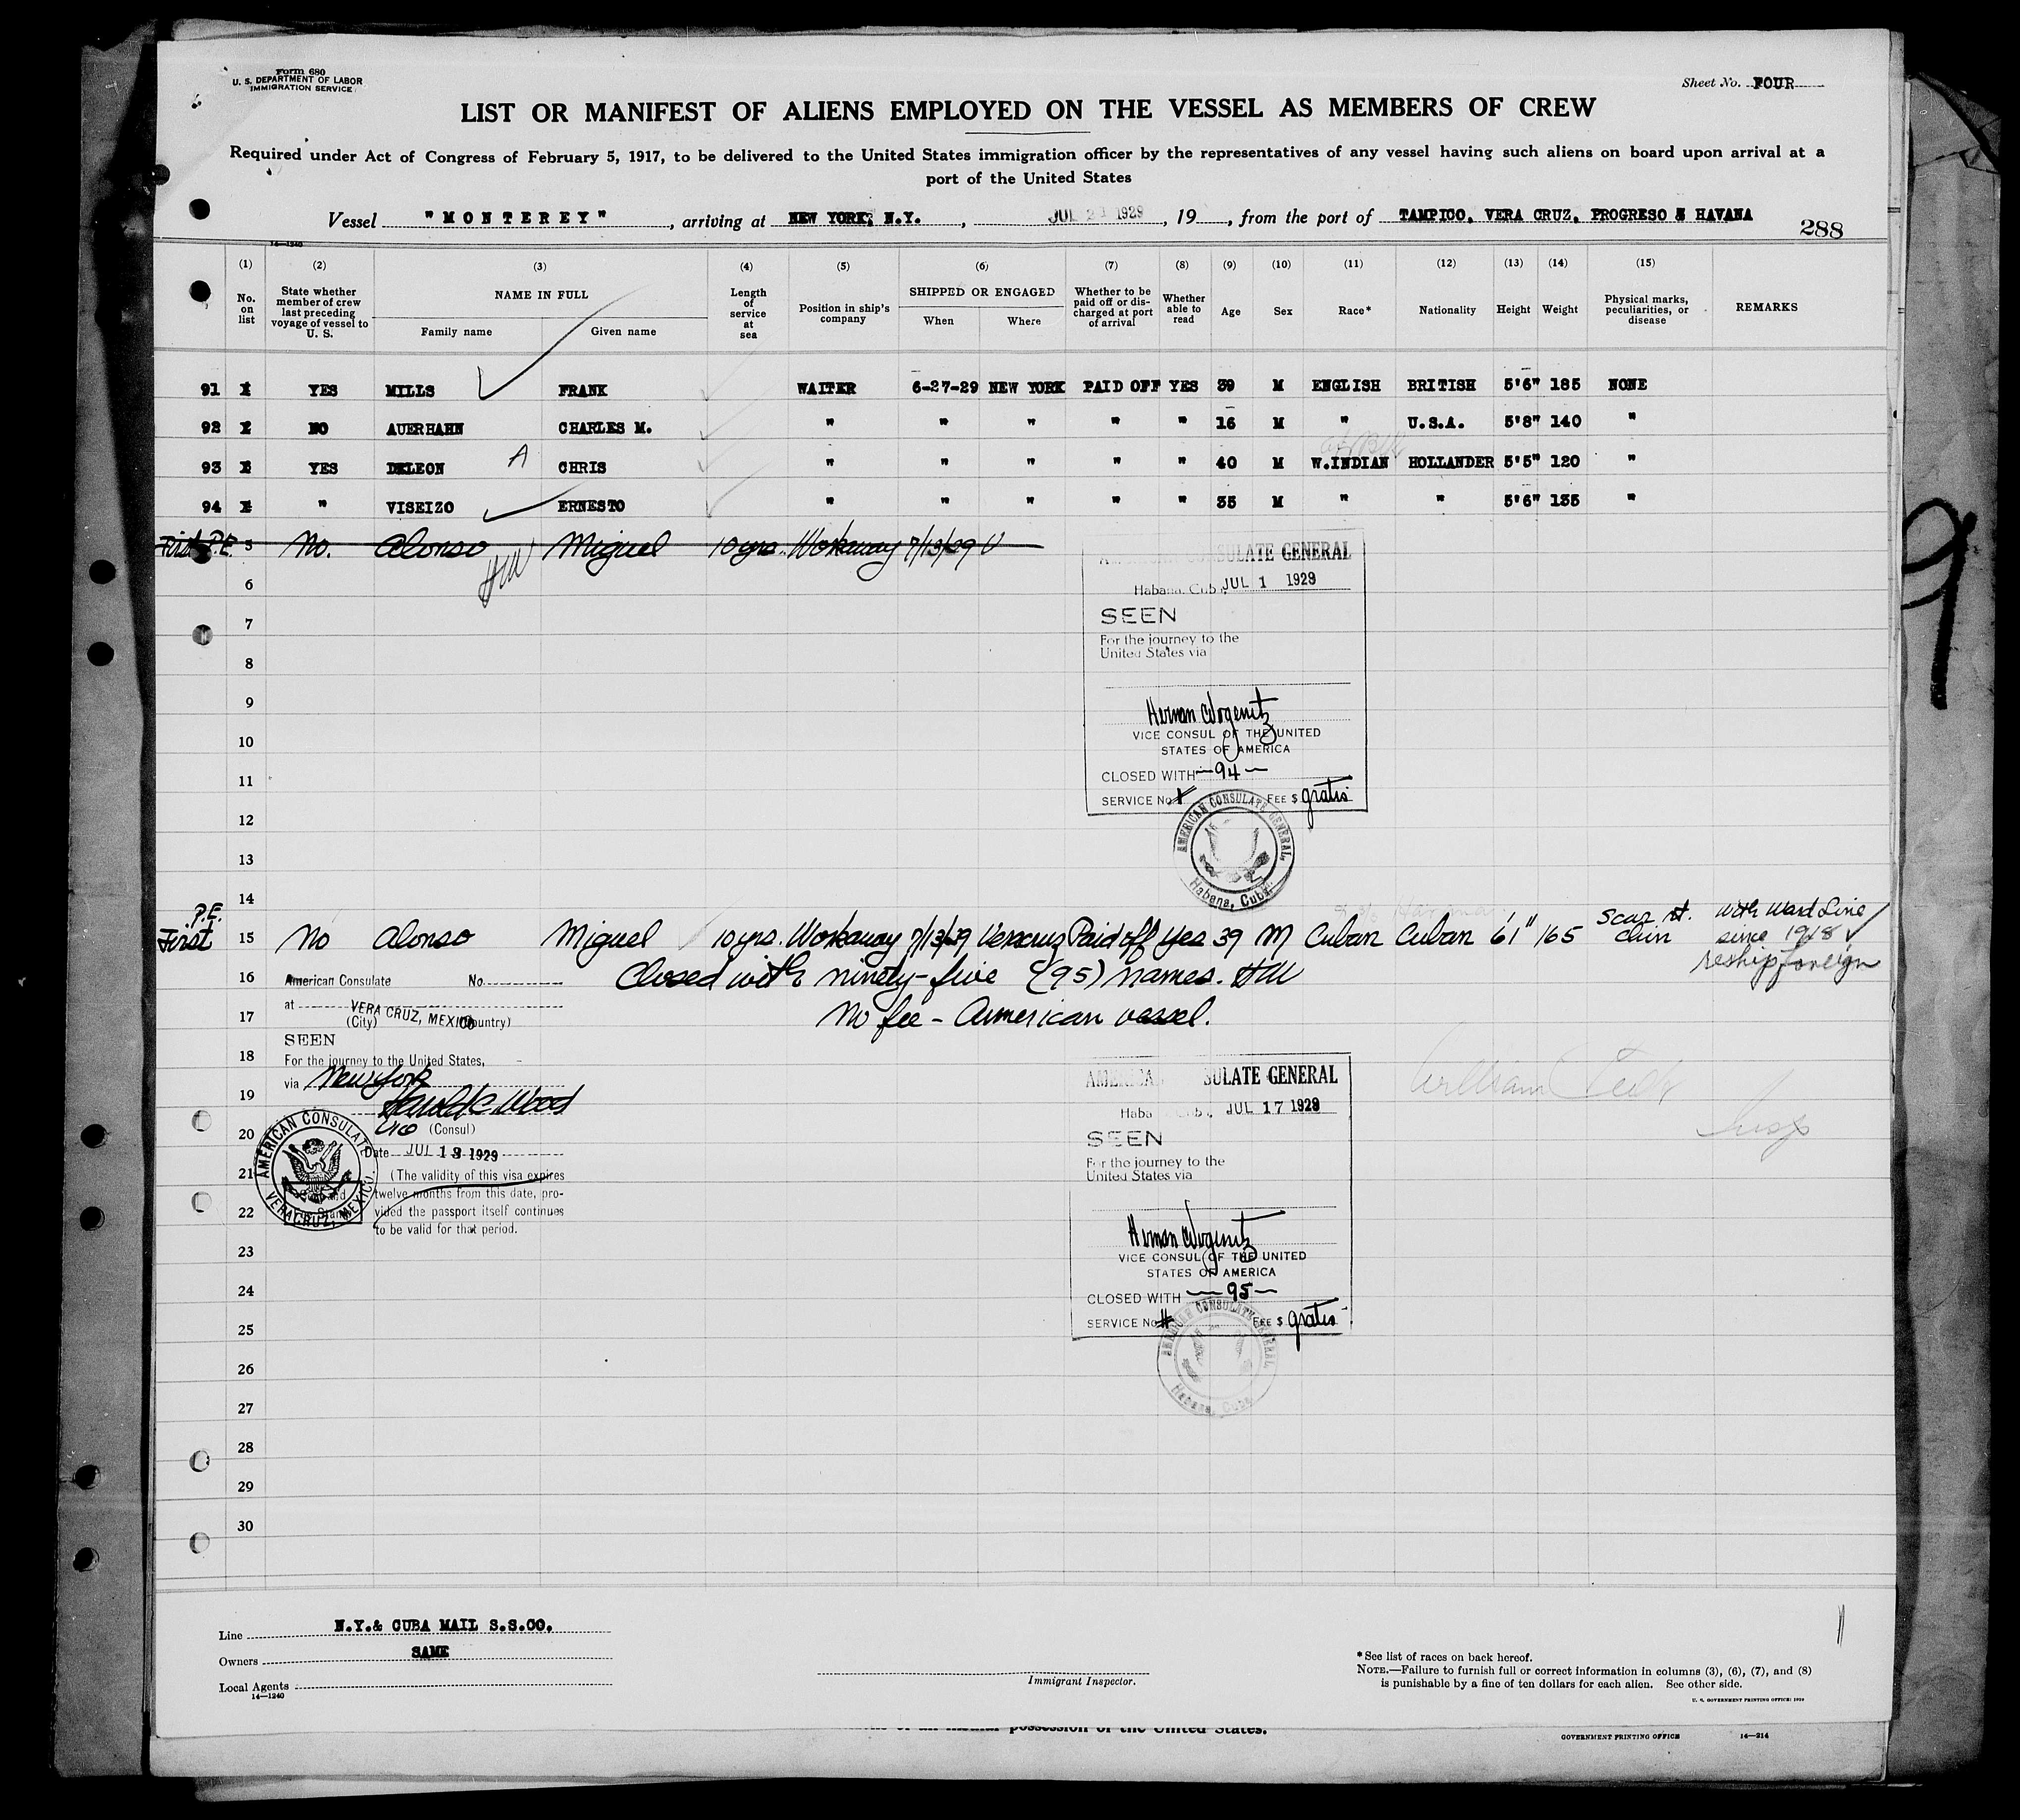 Form 680
U. S. DEPARTMENT OF LABOR
IMMIGRATION SERVICE
Sheet No. FOUR
LIST OR MANIFEST OF ALIENS EMPLOYED ON THE VESSEL AS MEMBERS OF CREW
Required under Act of Congress of February 5, 1917, to be delivered to the United States immigration officer by the representatives of any vessel having such aliens on board upon arrival at a
port of the United States
Vessel "MONTEREY", arriving at NEW YORK, N.Y., JUL 1929, 19, from the port of TAMPICO, VERA CRUZ, PROGRESO & HAVANA
288
14—1240
(1) (2) (3) (4) (5) (6) (7) (8) (9) (10) (11) (12) (13) (14) (15)
No. on list
State whether member of crew last preceding voyage of vessel to U. S.
NAME IN FULL
Family name
Given name
Length of service at sea
Position in ship's company
SHIPPED OR ENGAGED
When
Where
Whether to be paid off or discharged at port of arrival
Whether able to read
Age
Sex
Race*
Nationality
Height
Weight
Physical marks, peculiarities, or disease
REMARKS
91 1 YES MILLS FRANK WAITER 6-27-29 NEW YORK PAID OFF YES 39 M ENGLISH BRITISH 5'6" 185 NONE
92 2 NO AUERHAHN CHARLES M. " " " " " 16 M " U.S.A. 5'8" 140 "
93 3 YES DELEON A CHRIS " " " " " 40 M W.INDIAN HOLLANDER 5'5" 120 "
94 4 " VISEIZO ERNESTO " " " " " 35 M " " 5'6" 135 "
First P.E. 5 No. Alonso Miguel 10 yrs. Workaway 7/13/29 V
HW
6
7
8
9
10
11
12
13
14
AMERICAN CONSULATE GENERAL
Habana, Cuba, JUL 1 1929
SEEN
For the journey to the
United States via
Herman Wogenitz
VICE CONSUL OF THE UNITED
STATES OF AMERICA
CLOSED WITH —94—
SERVICE No. FEE $ gratis
AMERICAN CONSULATE GENERAL,
Habana, Cuba.
P.E.
First 15 No Alonso Miguel 10 yrs. Workaway 7/13/29 Veracruz Paid off yes 39 M Cuban Cuban 6'1" 165 Scar rt. chin with Ward Line since 1918 reship foreign
16 Closed with ninety-five (95) names. HW
17 No fee - American vessel.
18
19
20
21
22
23
24
25
26
27
28
29
30
American Consulate No.
at VERA CRUZ, MEXICO
(City) (Country)
SEEN
For the journey to the United States,
via New York
Harold C Wood
(Consul)
Date JUL 13 1929
(The validity of this visa expires
twelve months from this date, pro-
vided the passport itself continues
to be valid for that period.
AMERICAN CONSULATE
VERACRUZ, MEXICO.
AMERICAN CONSULATE GENERAL
Habana, Cuba, JUL 17 1929
SEEN
For the journey to the
United States via
Herman Wogenitz
VICE CONSUL OF THE UNITED
STATES OF AMERICA
CLOSED WITH —95—
SERVICE No. FEE $ gratis
AMERICAN CONSULATE GENERAL,
Habana, Cuba
William
Insp
Line N.Y.& CUBA MAIL S.S.CO.
Owners SAME
Local Agents
14—1240
Immigrant Inspector.
* See list of races on back hereof.
NOTE.—Failure to furnish full or correct information in columns (3), (6), (7), and (8)
is punishable by a fine of ten dollars for each alien. See other side.
U. S. GOVERNMENT PRINTING OFFICE: 1928
possession of the United States.
GOVERNMENT PRINTING OFFICE 14—214
9